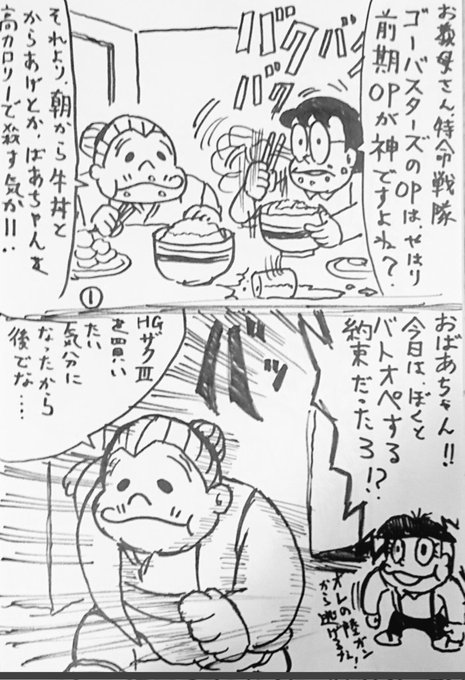 お義母さん特命戦隊
ゴーバスターズのOPは、やはり
前期OPが神ですよね?
バクバクバクバク
それより、朝から牛丼と
からあげとか、ばあちゃんを
高カロリーで殺す気か!!..
①
おばあちゃん!!
今日は、ぼくと
バトオペする
約束だったろ!?
バッ
HGザクⅢ
を買い
たい
気分に
なったから
後でな....
オレの陸ガン
から逃げるな!